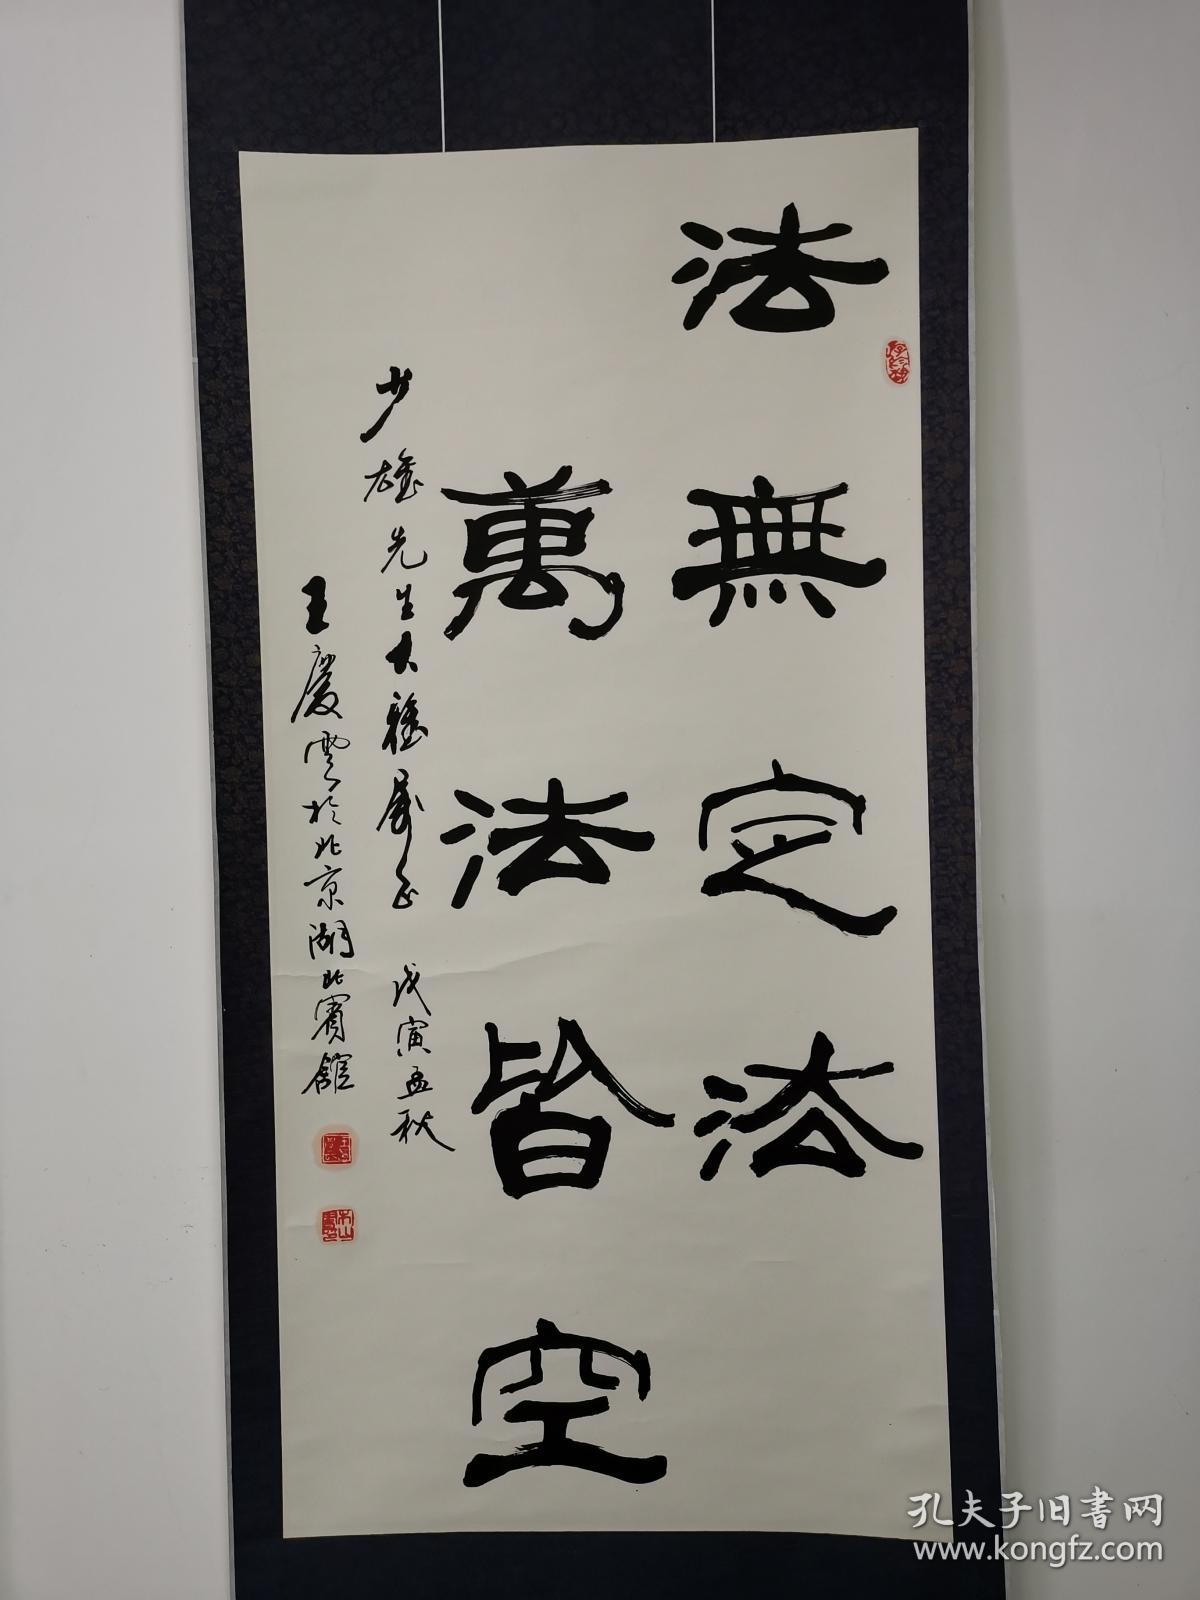 法無定法
萬法皆空
少雄先生大雅属正 戊寅孟秋
王慶雲於北京湖北賓館
孔夫子旧書网
www.kongfz.com